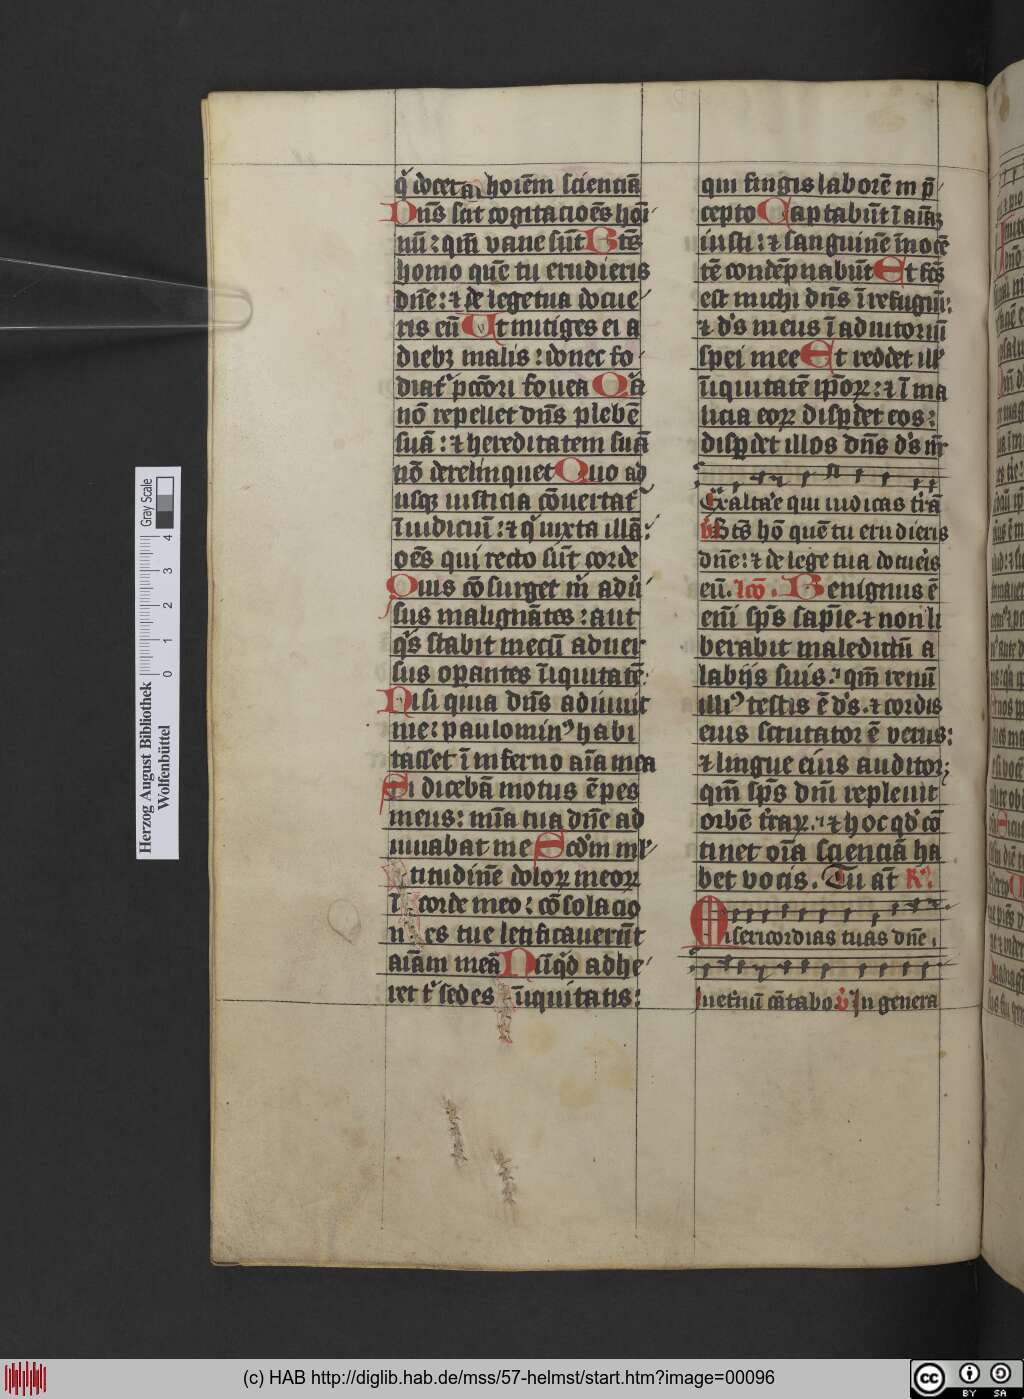 qͥ docet horēm scienciā
Dn̄s scit cogitacioēs homī
nū: qm̄ vane sūt Btē̄s
homo quē tu erudieris
dn̄e: ⁊ de lege tua docue
ris eū Ut mitiges ei a
diebꝫ malis: donec fo
diatᷣ pccōri fovea Qͥa
nō repellet dn̄s plebē
suā: ⁊ hereditatem suā
nō derelinquet Quo ad
usqꝫ iusticia cōvertatᷣ
ī iudiciū: ⁊ qͥ iuxta illā:
oēs qui recto sūt corde
Quis cōsurget m̄ adū
sus malignātes: aut
qͥs stabit mecū adver
sus opantes īiquitatē
Nisi quia dn̄s adiuvit
me: paulominꝰ habi
tasset ī inferno aīa mea
Si dicebā motus ē pes
meus: mīa tua dn̄e ad
iuvabat me Scd̄m ml̓
titudinē dolorꝝ meorꝝ
ī corde meo: cōsolacio
nes tue letificaverūt
aīam meā Nūqͥd adhe
ret tᷣ sedes īiquitatis:
qui fingis laborē in p̄
cepto Captabūt ī aīaꝫ
iusti: ⁊ sanguinē īnocē
tē condēpnabūt Et fcs̄
est michi dn̄s ī refugiū:
⁊ ds̄ meus ī adiutoriū
spei mee Et reddet ill̓
īiquitatē ip̄orꝝ: ⁊ ī ma
licia eorꝝ disp̱det eos:
disp̱det illos dn̄s ds̄ nr̄
Exaltare qui iudicas tr̄ā
v̓ Btē̄s hō quē tu erudieris
dn̄e: ⁊ de lege tua docue̓is
eū. lcō. Benignus ē
em̄ sp̄s sapīe ⁊ non li
berabit maledictū a
labijs suis. qm̄ renū
illiꝰ testis ē ds̄. ⁊ cordis
eius scrutator ē verus:
⁊ lingue eius auditor;
qm̄ sp̄s dn̄i replevit
orbē tr̄arꝝ. ⁊ hoc qd̓ cō
tinet oīa scienciā ha
bet vocis. Tu aūt R̓
Misericordias tuas dn̄e.
Inetnū cātabo. v̓ In genera
Herzog August Bibliothek
Wolfenbüttel
0 1 2 3 4
Gray Scale
(c) HAB http://diglib.hab.de/mss/57-helmst/start.htm?image=00096
cc BY SA